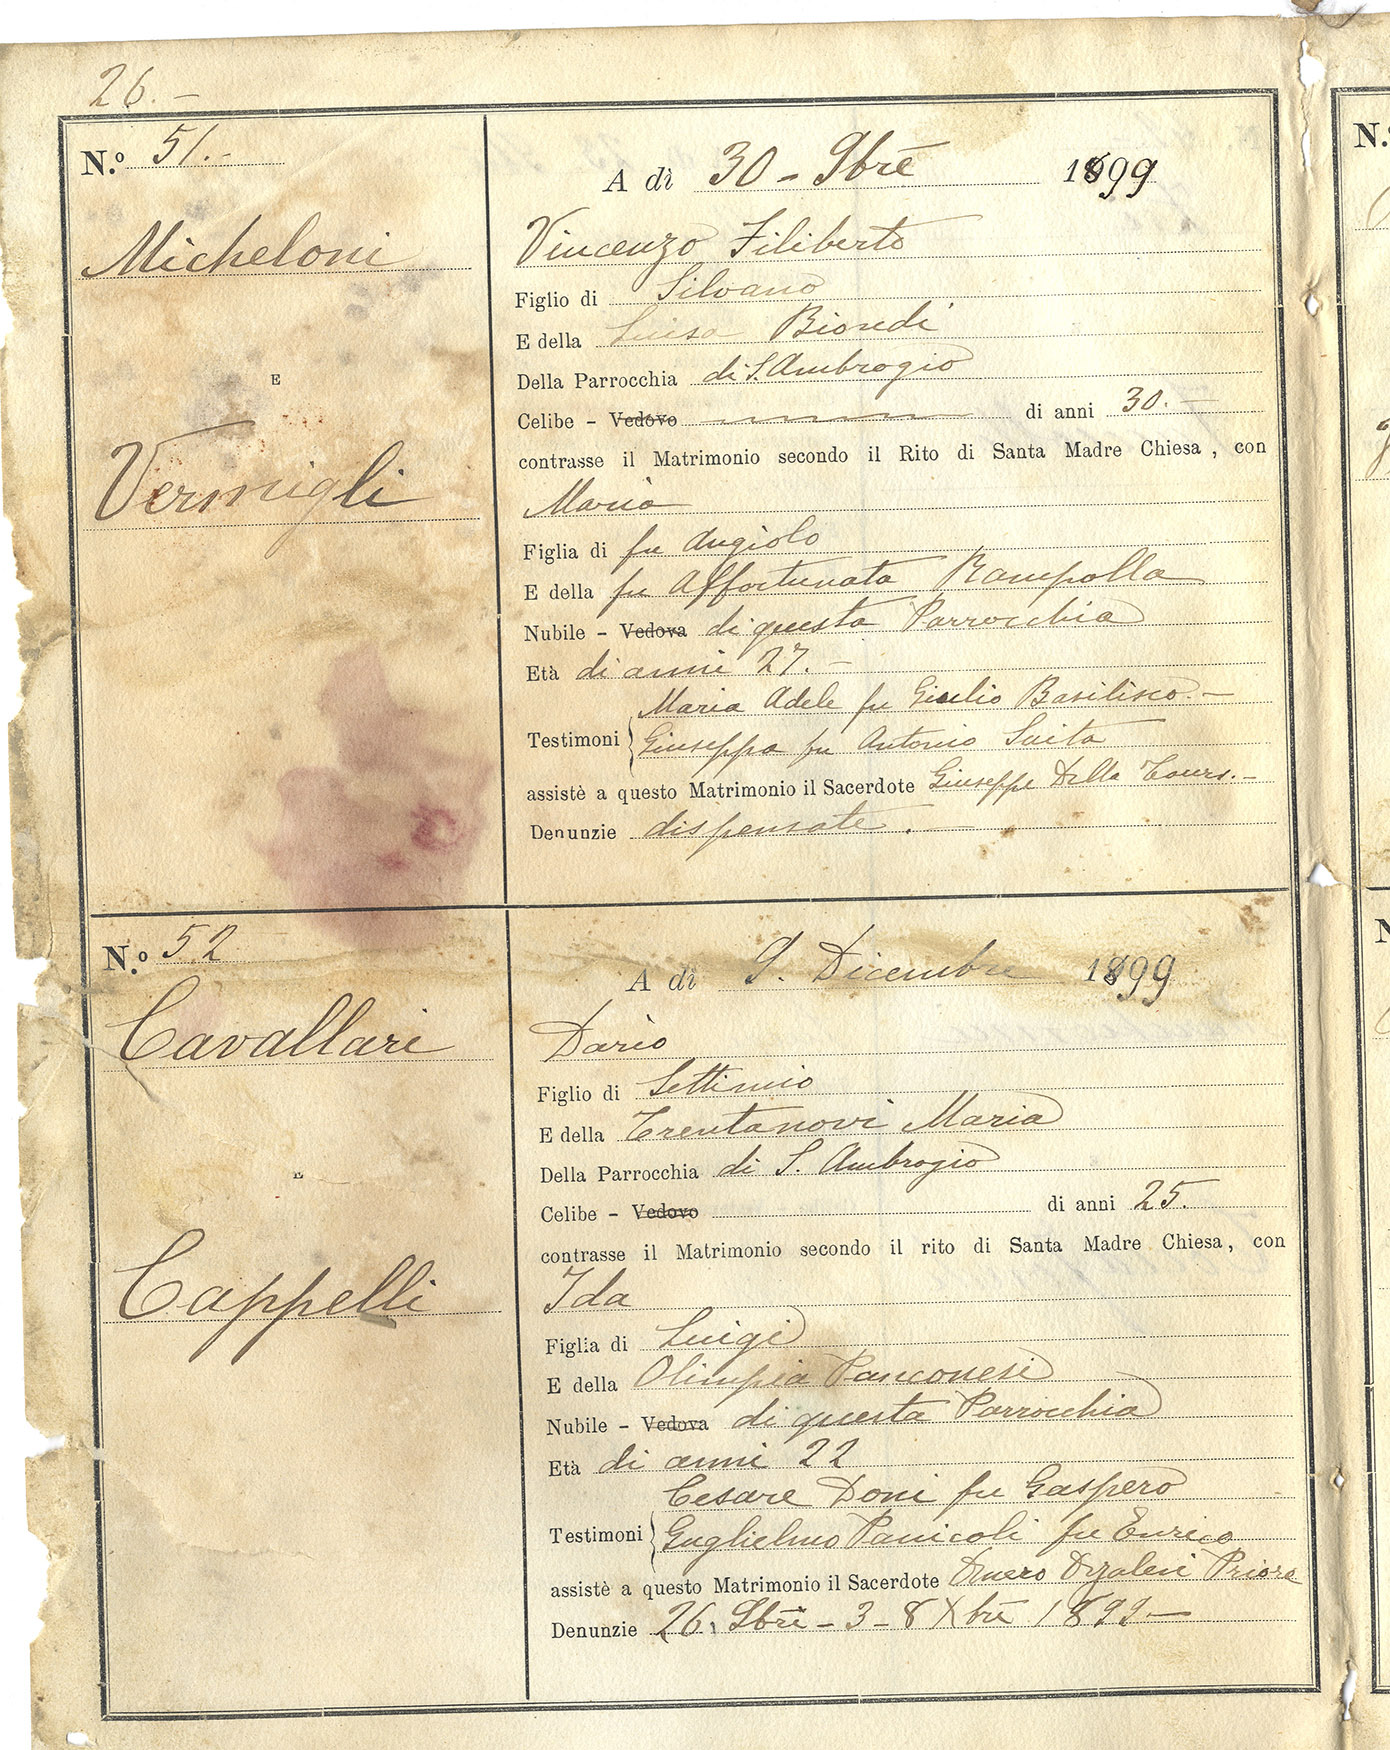 26.-
N.º 51.-
A dì 30 - 9bre 1899
Micheloni
Vincenzo Filiberto
Figlio di Silvano
E della Luisa Biondi
E
Della Parrocchia di S. Ambrogio
Celibe - Vedovo di anni 30.-
contrasse il Matrimonio secondo il Rito di Santa Madre Chiesa, con
Vermigli
Maria
Figlia di fu Angiolo
E della fu Affortunata Rampolla
Nubile - Vedova di questa Parrocchia
Età di anni 27.-
Maria Adele fu Giulio Basilisco.-
Testimoni Giuseppa fu Antonio
assistè a questo Matrimonio il Sacerdote Giuseppe Della
Denunzie dispensate.
N.º 52
A dì 9. Dicembre 1899
Cavallari
Dario
Figlio di Settimio
E della Trentanovi Maria
Della Parrocchia di S. Ambrogio
E
Celibe - Vedovo di anni 25.
contrasse il Matrimonio secondo il rito di Santa Madre Chiesa, con
Cappelli
Ida
Figlia di Luigi
E della Olimpia Panconesi
Nubile - Vedova di questa Parrocchia
Età di anni 22
Cesare Doni fu Gaspero
Testimoni Guglielmo Panicoli fu Enrico
assistè a questo Matrimonio il Sacerdote Priore
Denunzie 26. 9bre - 3 - 8 Xbre 1899-
N.º
N